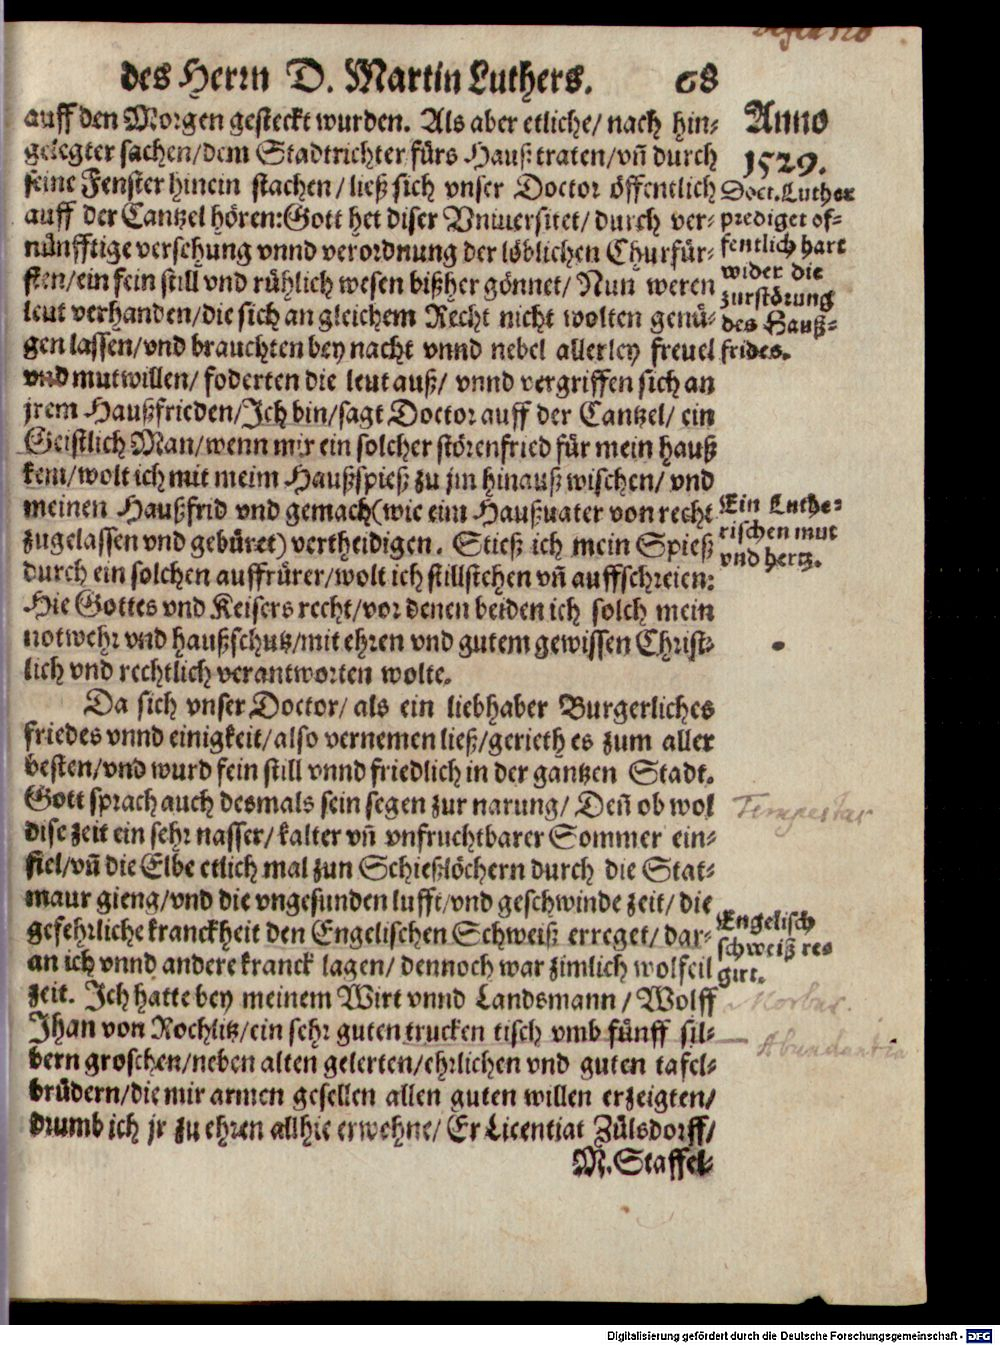 des Herrn D. Martin Luthers. 68
auff den Morgen gesteckt wurden. Als aber etliche/ nach hin-
gelegter sachen/dem Stadtrichter fürs Hauß traten/vn̄ durch
seine Fenster hinein stachen/ließ sich vnser Doctor öffentlich
auff der Cantzel hören:Gott het diser Vniuersitet/durch ver-
nünfftige versehung vnnd verordnung der löblichen Churfür-
sten/ein fein still vnd rühlich wesen bißher gönnet/ Nun weren
leut verhanden/die sich an gleichem Recht nicht wolten genü-
gen lassen/vnd brauchten bey nacht vnnd nebel allerley freuel
vnd mutwillen/ foderten die leut auß/ vnnd vergriffen sich an
jrem Haußfrieden/Ich bin/sagt Doctor auff der Cantzel/ ein
Geistlich Man/wenn mir ein solcher störenfried für mein hauß
kem/wolt ich mit meim Haußspieß zu jm hinauß wischen/ vnd
meinen Haußfrid vnd gemach(wie eim Haußuater von recht
zugelassen vnd gebüret) vertheidigen. Stieß ich mein Spieß
durch ein solchen auffrürer/wolt ich stillstehen vn̄ auffschreien:
Hie Gottes vnd Keisers recht/vor denen beiden ich solch mein
notwehr vnd haußschutz/mit ehren vnd gutem gewissen Christ-
lich vnd rechtlich verantworten wolte.
Da sich vnser Doctor/ als ein liebhaber Burgerliches
friedes vnnd einigkeit/also vernemen ließ/gerieth es zum aller
besten/vnd wurd fein still vnnd friedlich in der gantzen Stadt.
Gott sprach auch desmals sein segen zur narung/ Den̄ ob wol
dise zeit ein sehr nasser/kalter vn̄ vnfruchtbarer Sommer ein-
fiel/vn̄ die Elbe etlich mal zun Schießlöchern durch die Stat-
maur gieng/vnd die vngesunden lufft/vnd geschwinde zeit/ die
gefehrliche kranckheit den Engelischen Schweiß erreget/ dar-
an ich vnnd andere kranck lagen/ dennoch war zimlich wolfeil
zeit. Ich hatte bey meinem Wirt vnnd Landsmann / Wolff
Jhan von Rochlitz/ein sehr guten trucken tisch vmb fünff sil-
bern groschen/neben alten gelerten/ehrlichen vnd guten tafel-
brüdern/die mir armen gesellen allen guten willen erzeigten/
drumb ich jr zu ehren allhie erwehne/ Er Licentiat Zülsdorff/
M. Staffel-
Anno
1529.
Doct. Luther
prediget of-
fentlich hart
wider die
zurstörung
des Hauß-
frides.
Ein Luthe-
rischen mut
vnd hertz.
Tempestas
Engelisch
schweiß re-
girt.
Morbus.
Abundantia
Digitalisierung gefördert durch die Deutsche Forschungsgemeinschaft - DFG